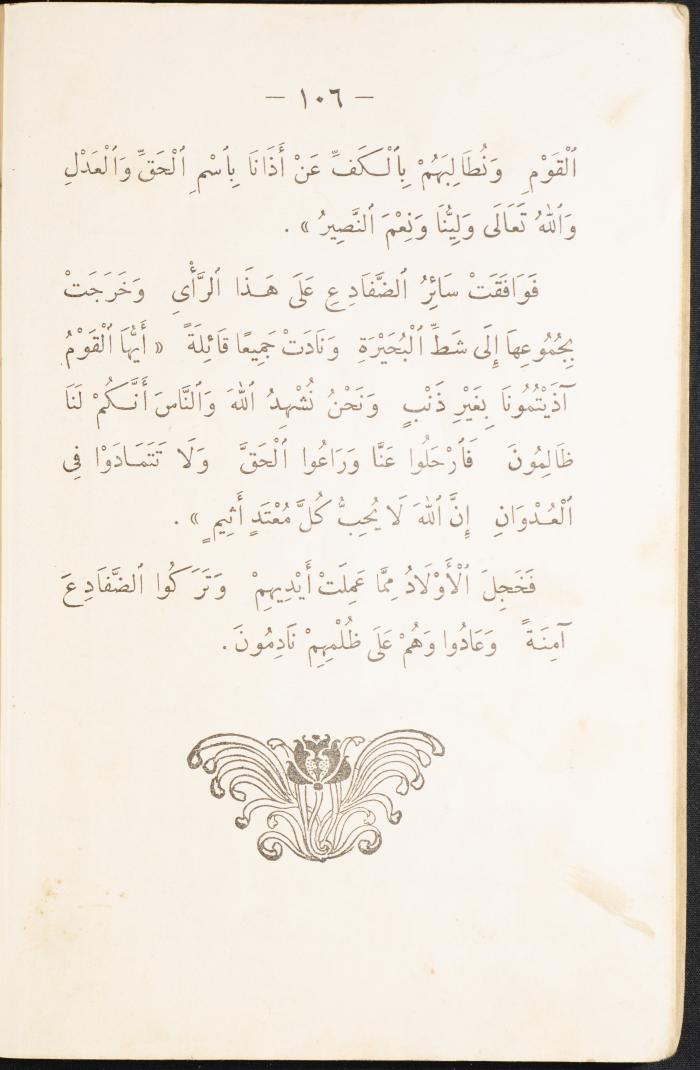 — ١٠٦ —
ٱلْقَوْمِ وَنُطَالِبَهُمْ بِٱلْكَفِّ عَنْ أَذَانَا بِٱسْمِ ٱلْحَقِّ وَٱلْعَدْلِ
وَٱللهُ تَعَالَى وَلِيُّنَا وَنِعْمَ ٱلنَّصِيرُ » .
فَوَافَقَتْ سَائِرُ ٱلضَّفَادِعِ عَلَى هَذَا ٱلرَّأْيِ وَخَرَجَتْ
بِجُمُوعِهَا إِلَى شَطِّ ٱلْبُحَيْرَةِ وَنَادَتْ جَمِيعًا قَائِلَةً « أَيُّهَا ٱلْقَوْمُ
آذَيْتُمُونَا بِغَيْرِ ذَنْبٍ وَنَحْنُ نُشْهِدُ ٱللهَ وَٱلنَّاسَ أَنَّكُمْ لَنَا
ظَالِمُونَ فَٱرْحَلُوا عَنَّا وَرَاعُوا ٱلْحَقَّ وَلَا تَتَمَادَوْا فِي
ٱلْعُدْوَانِ إِنَّ ٱللهَ لَا يُحِبُّ كُلَّ مُعْتَدٍ أَثِيمٍ » .
فَخَجِلَ ٱلْأَوْلَادُ مِمَّا عَمِلَتْ أَيْدِيهِمْ وَتَرَكُوا ٱلضَّفَادِعَ
آمِنَةً وَعَادُوا وَهُمْ عَلَى ظُلْمِهِمْ نَادِمُونَ .